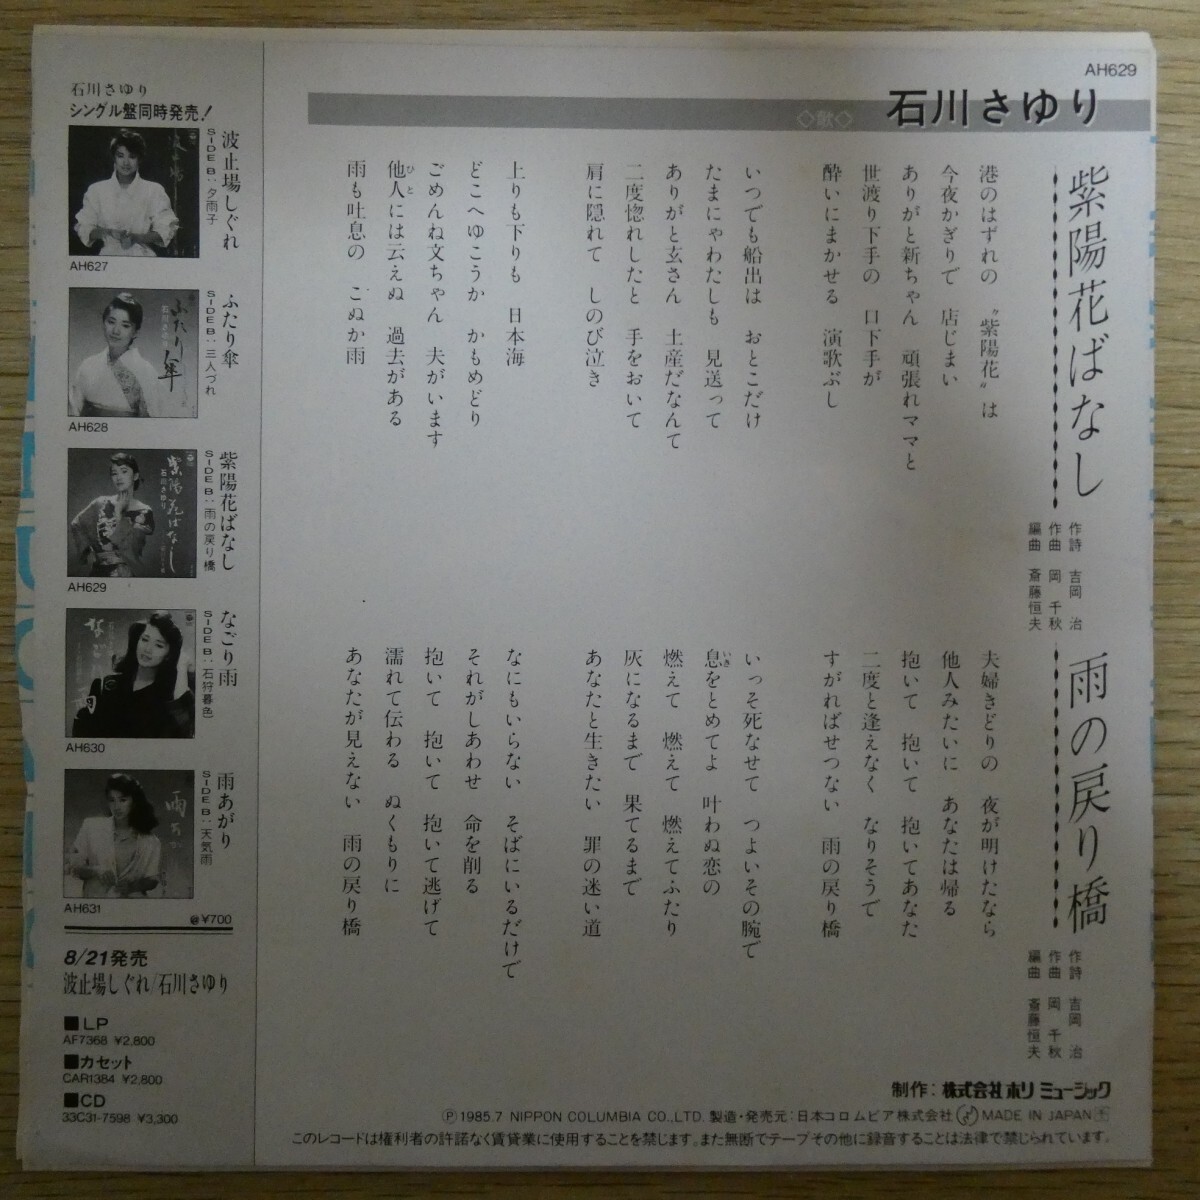 AH629
石川さゆり
◇歌◇
紫陽花ばなし
作詩 吉岡 治
作曲 岡 千秋
編曲 斎藤恒夫
港のはずれの 〝紫陽花〟は
今夜かぎりで 店じまい
ありがと新ちゃん 頑張れママと
世渡り下手の 口下手が
酔いにまかせる 演歌ぶし
いつでも船出は おとこだけ
たまにゃわたしも 見送って
ありがと玄さん 土産だなんて
二度惚れしたと 手をおいて
肩に隠れて しのび泣き
上りも下りも 日本海
どこへゆこうか かもめどり
ごめんね文ちゃん 夫がいます
他人には云えぬ 過去がある
ひと
雨も吐息の こぬか雨
雨の戻り橋
作詩 吉岡 治
作曲 岡 千秋
編曲 斎藤恒夫
夫婦きどりの 夜が明けたなら
他人みたいに あなたは帰る
抱いて 抱いて 抱いてあなた
二度と逢えなく なりそうで
すがればせつない 雨の戻り橋
いっそ死なせて つよいその腕で
息をとめてよ 叶わぬ恋の
いき
燃えて 燃えて 燃えてふたり
灰になるまで 果てるまで
あなたと生きたい 罪の迷い道
なにもいらない そばにいるだけで
それがしあわせ 命を削る
抱いて 抱いて 抱いて逃げて
濡れて伝わる ぬくもりに
あなたが見えない 雨の戻り橋
石川さゆり
シングル盤同時発売!
波止場しぐれ
SIDE B:夕雨子
AH627
ふたり傘
SIDE B:三人づれ
ふたり傘
AH628
紫陽花ばなし
SIDE B:雨の戻り橋
紫陽花ばなし
石川さゆり
AH629
なごり雨
SIDE B:石狩暮色
なごり雨
AH630
雨あがり
SIDE B:天気雨
AH631
¥700
8/21発売
波止場しぐれ/石川さゆり
■LP
AF7368 ¥2,800
■カセット
CAR1384 ¥2,800
■CD
33C31-7598 ¥3,300
制作:株式会社ホリ ミュージック
Ⓟ1985.7 NIPPON COLUMBIA CO.,LTD. 製造・発売元:日本コロムビア株式会社 MADE IN JAPAN
このレコードは権利者の許諾なく賃貸業に使用することを禁じます。また無断でテープその他に録音することは法律で禁じられています。